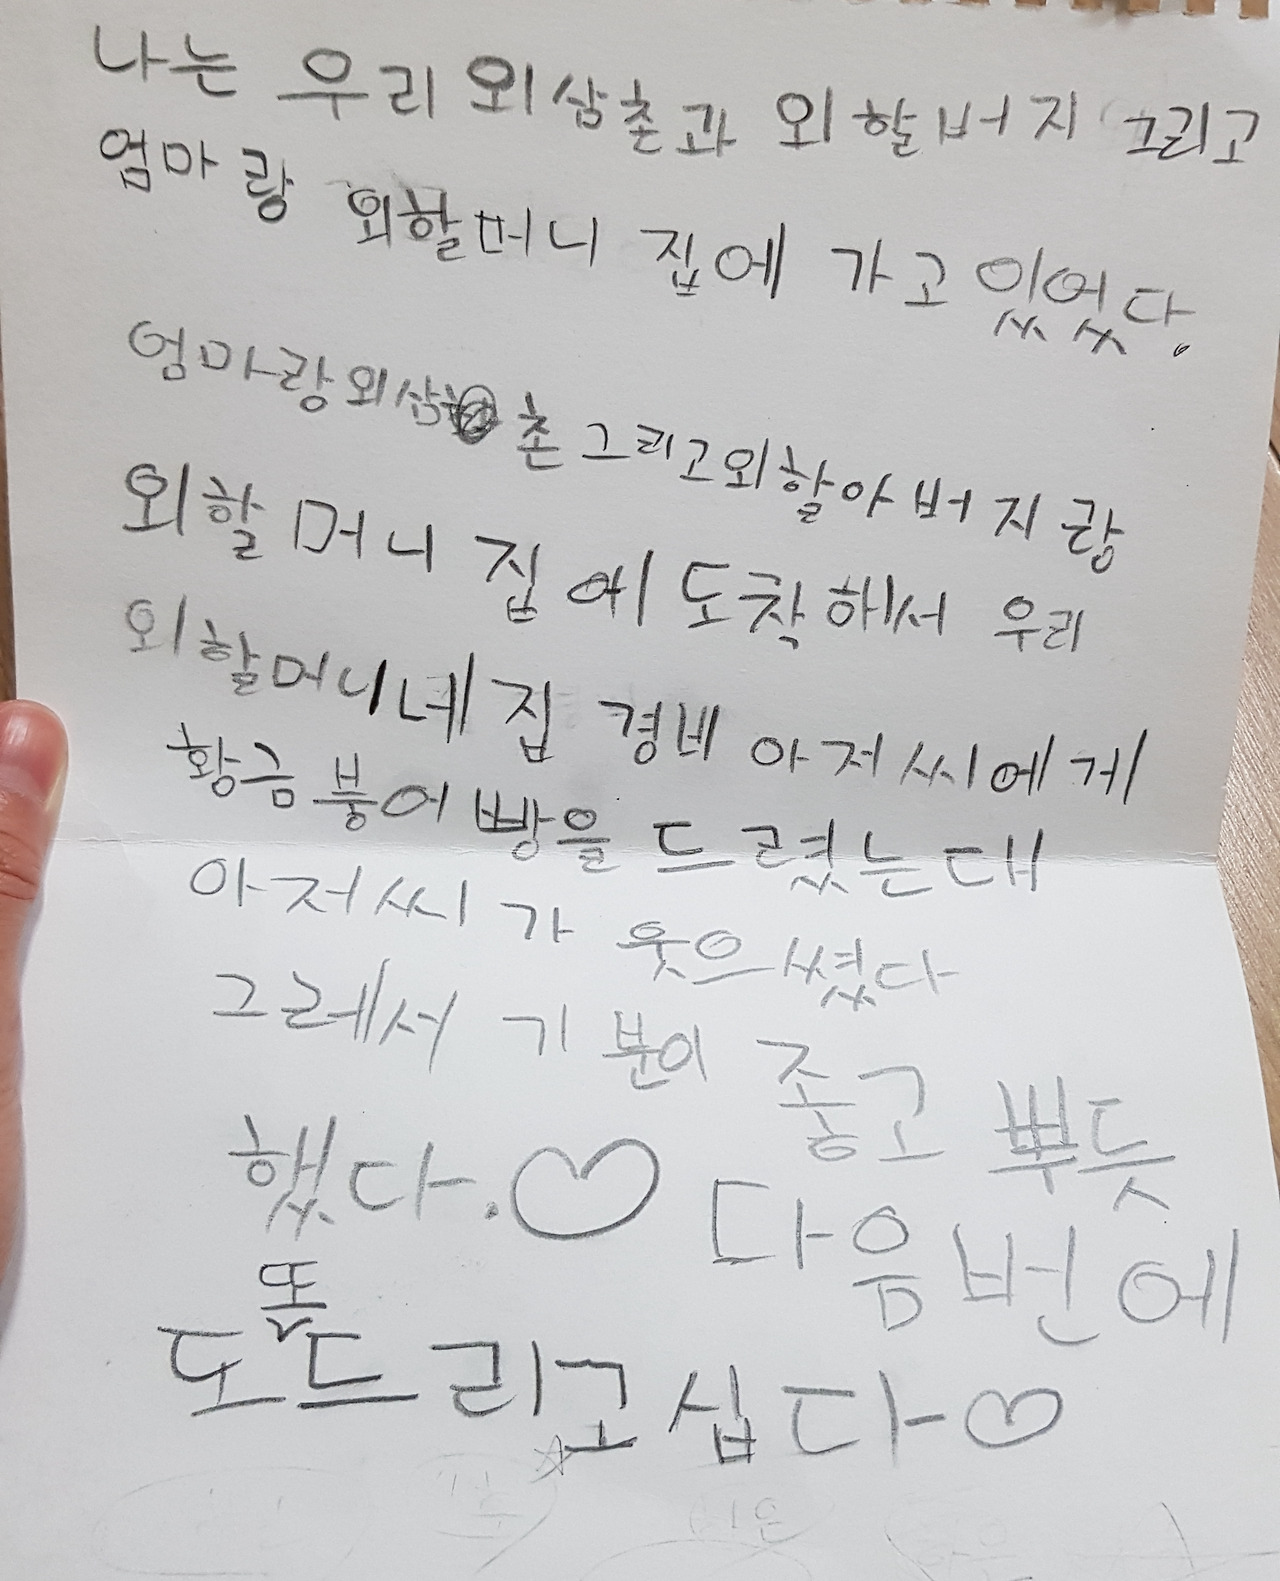 나는 우리 외삼촌과 외할버지 그리고
엄마랑 외할머니 집에 가고 있었다.
엄마랑외삼 촌 그리고외할아버지랑
외할머니 집에 도착해서 우리
외할머니네 집 경비 아저씨에게
황금붕어빵을 드렸는대
아저씨가 웃으셨다
그레서 기분이 좋고 뿌듯
했다.♡ 다음번에
또
도드리고십다♡